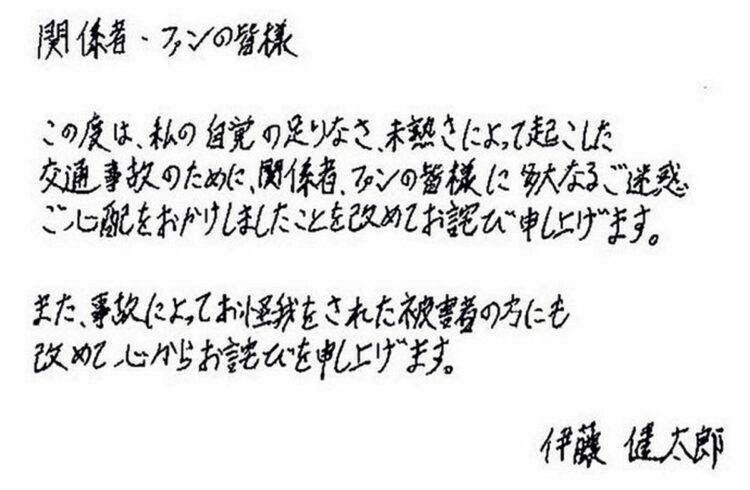 関係者・ファンの皆様
この度は、私の自覚の足りなさ、未熟さによって起こした
交通事故のために、関係者、ファンの皆様に多大なるご迷惑
ご心配をおかけしましたことを改めてお詫び申し上げます。
また、事故によってお怪我をされた被害者の方にも
改めて心からお詫びを申し上げます。
伊藤 健太郎